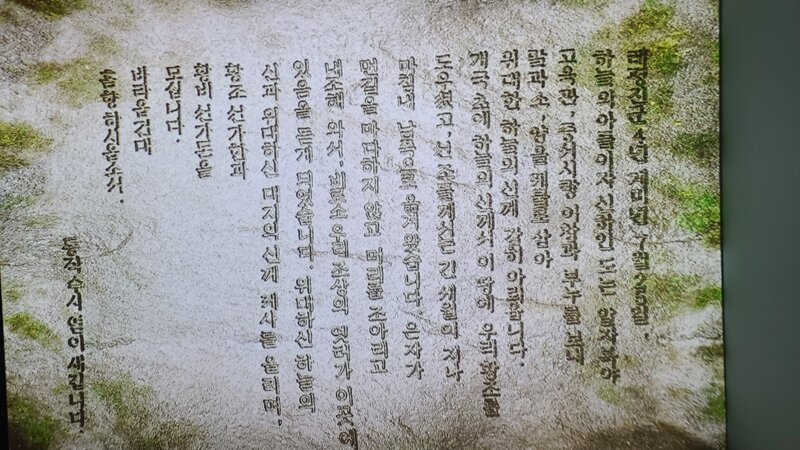 태평진군 4년 계미년 7월 25일,
하늘의 아들이자 신하인 도는 알자복야
고육관, 중서시랑 이창과 부누를 보내
말과 소, 양을 제물로 삼아
위대한 하늘의 신께 감히 아룁니다.
개국 초에 하늘의 신께서 이 땅에 우리 황조를
도우셨고, 선조들께서는 긴 세월이 지나
마침내 남쪽으로 옮겨 왔습니다. 은자가
먼 길을 마다하지 않고 머리를 조아리고
내조해 와서, 비로소 우리 조상의 옛터가 이곳에
있음을 듣게 되었습니다. 위대하신 하늘의
신과 위대하신 대지의 신께 제사를 올리며,
황조 선가한과
황비 선가돈을
모십니다.
바라옵건대
흠향하시옵소서.
동작수사 염이 새깁니다.